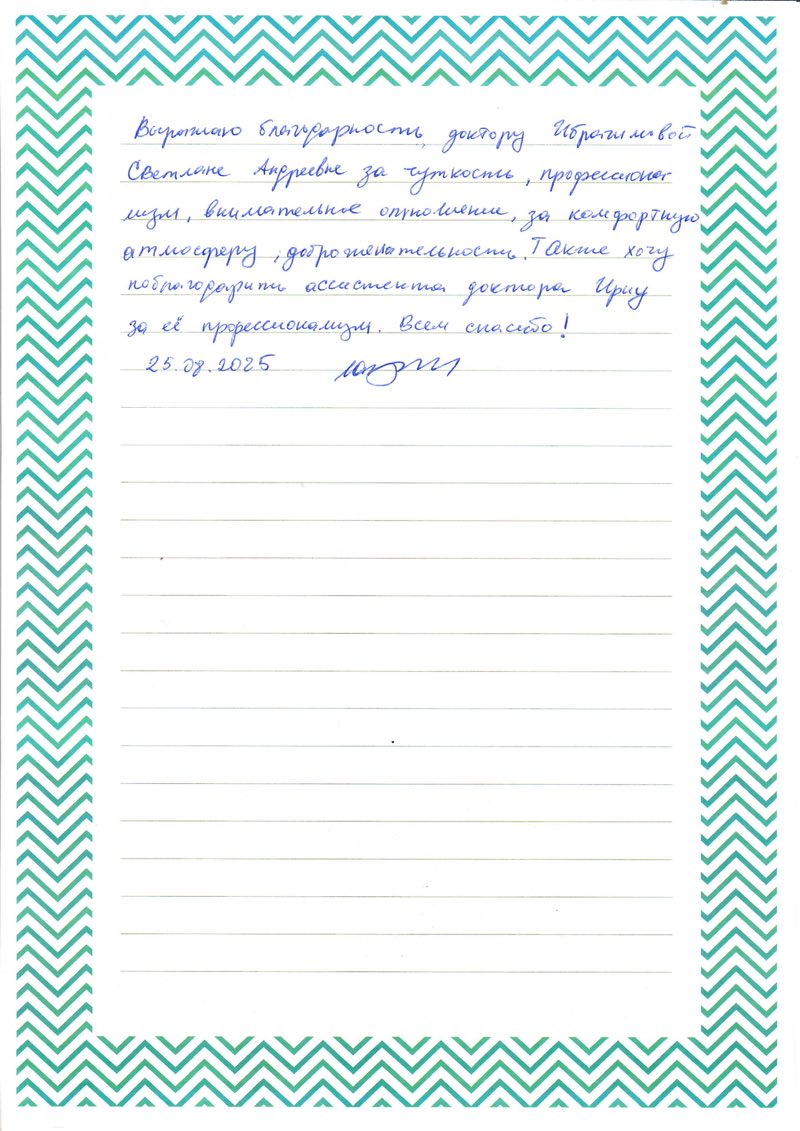 Выражаю благодарность, доктору Ибрагимовой
Светлане Андреевне за чуткость, профессионал
изм, внимательное отношение, за комфортную
атмосферу, доброжелательность. Также хочу
поблагодарить ассистента доктора Ирину
за её профессионализм. Всем спасибо!
25.08.2025